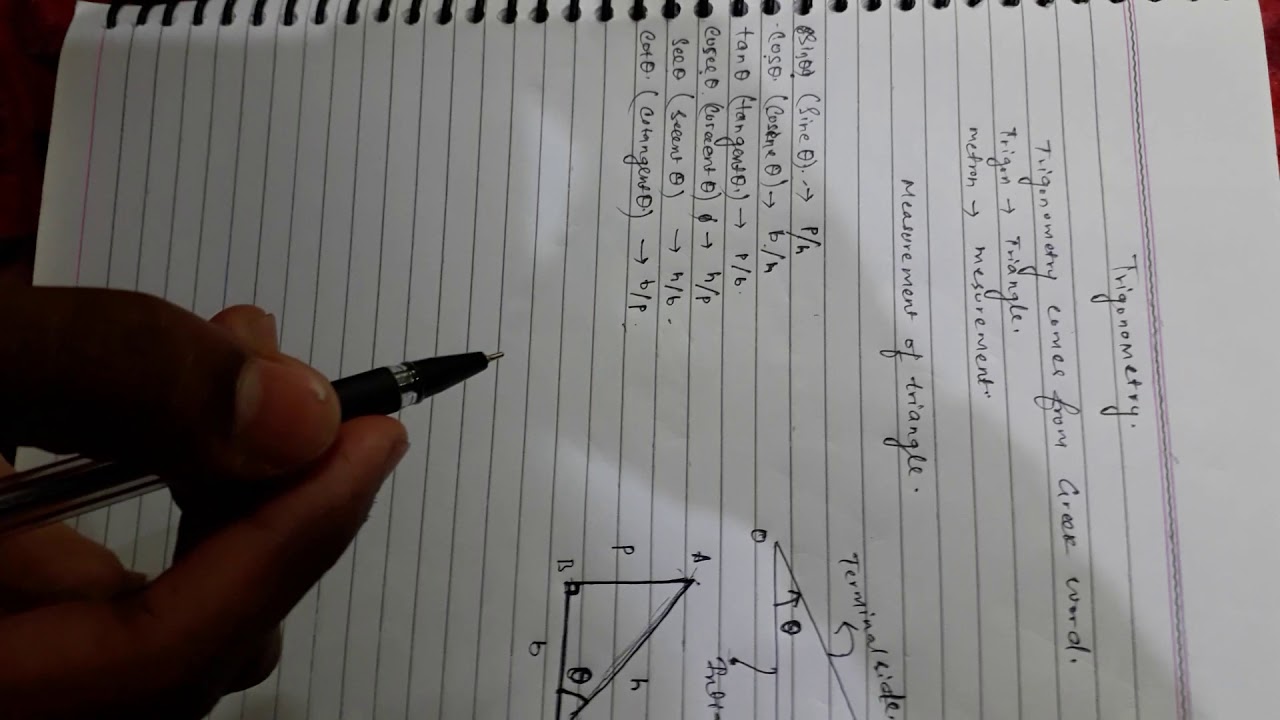 Trigonometry.
Trigonometry comes from Greek word.
Trigon → Triangle.
metron → mesurement.
Measurement of triangle.
Sinθ (Sine θ). → P/h
Cosθ. (Cosine θ) → b/h
tan θ (tangentθ.) → P/b.
Cosec θ. (cosecent θ) → h/p
Sec θ (secent θ) → h/b.
Cot θ. (cotangentθ.) → b/p.
Terminal side.
O
θ
A
P
h
B
b
θ